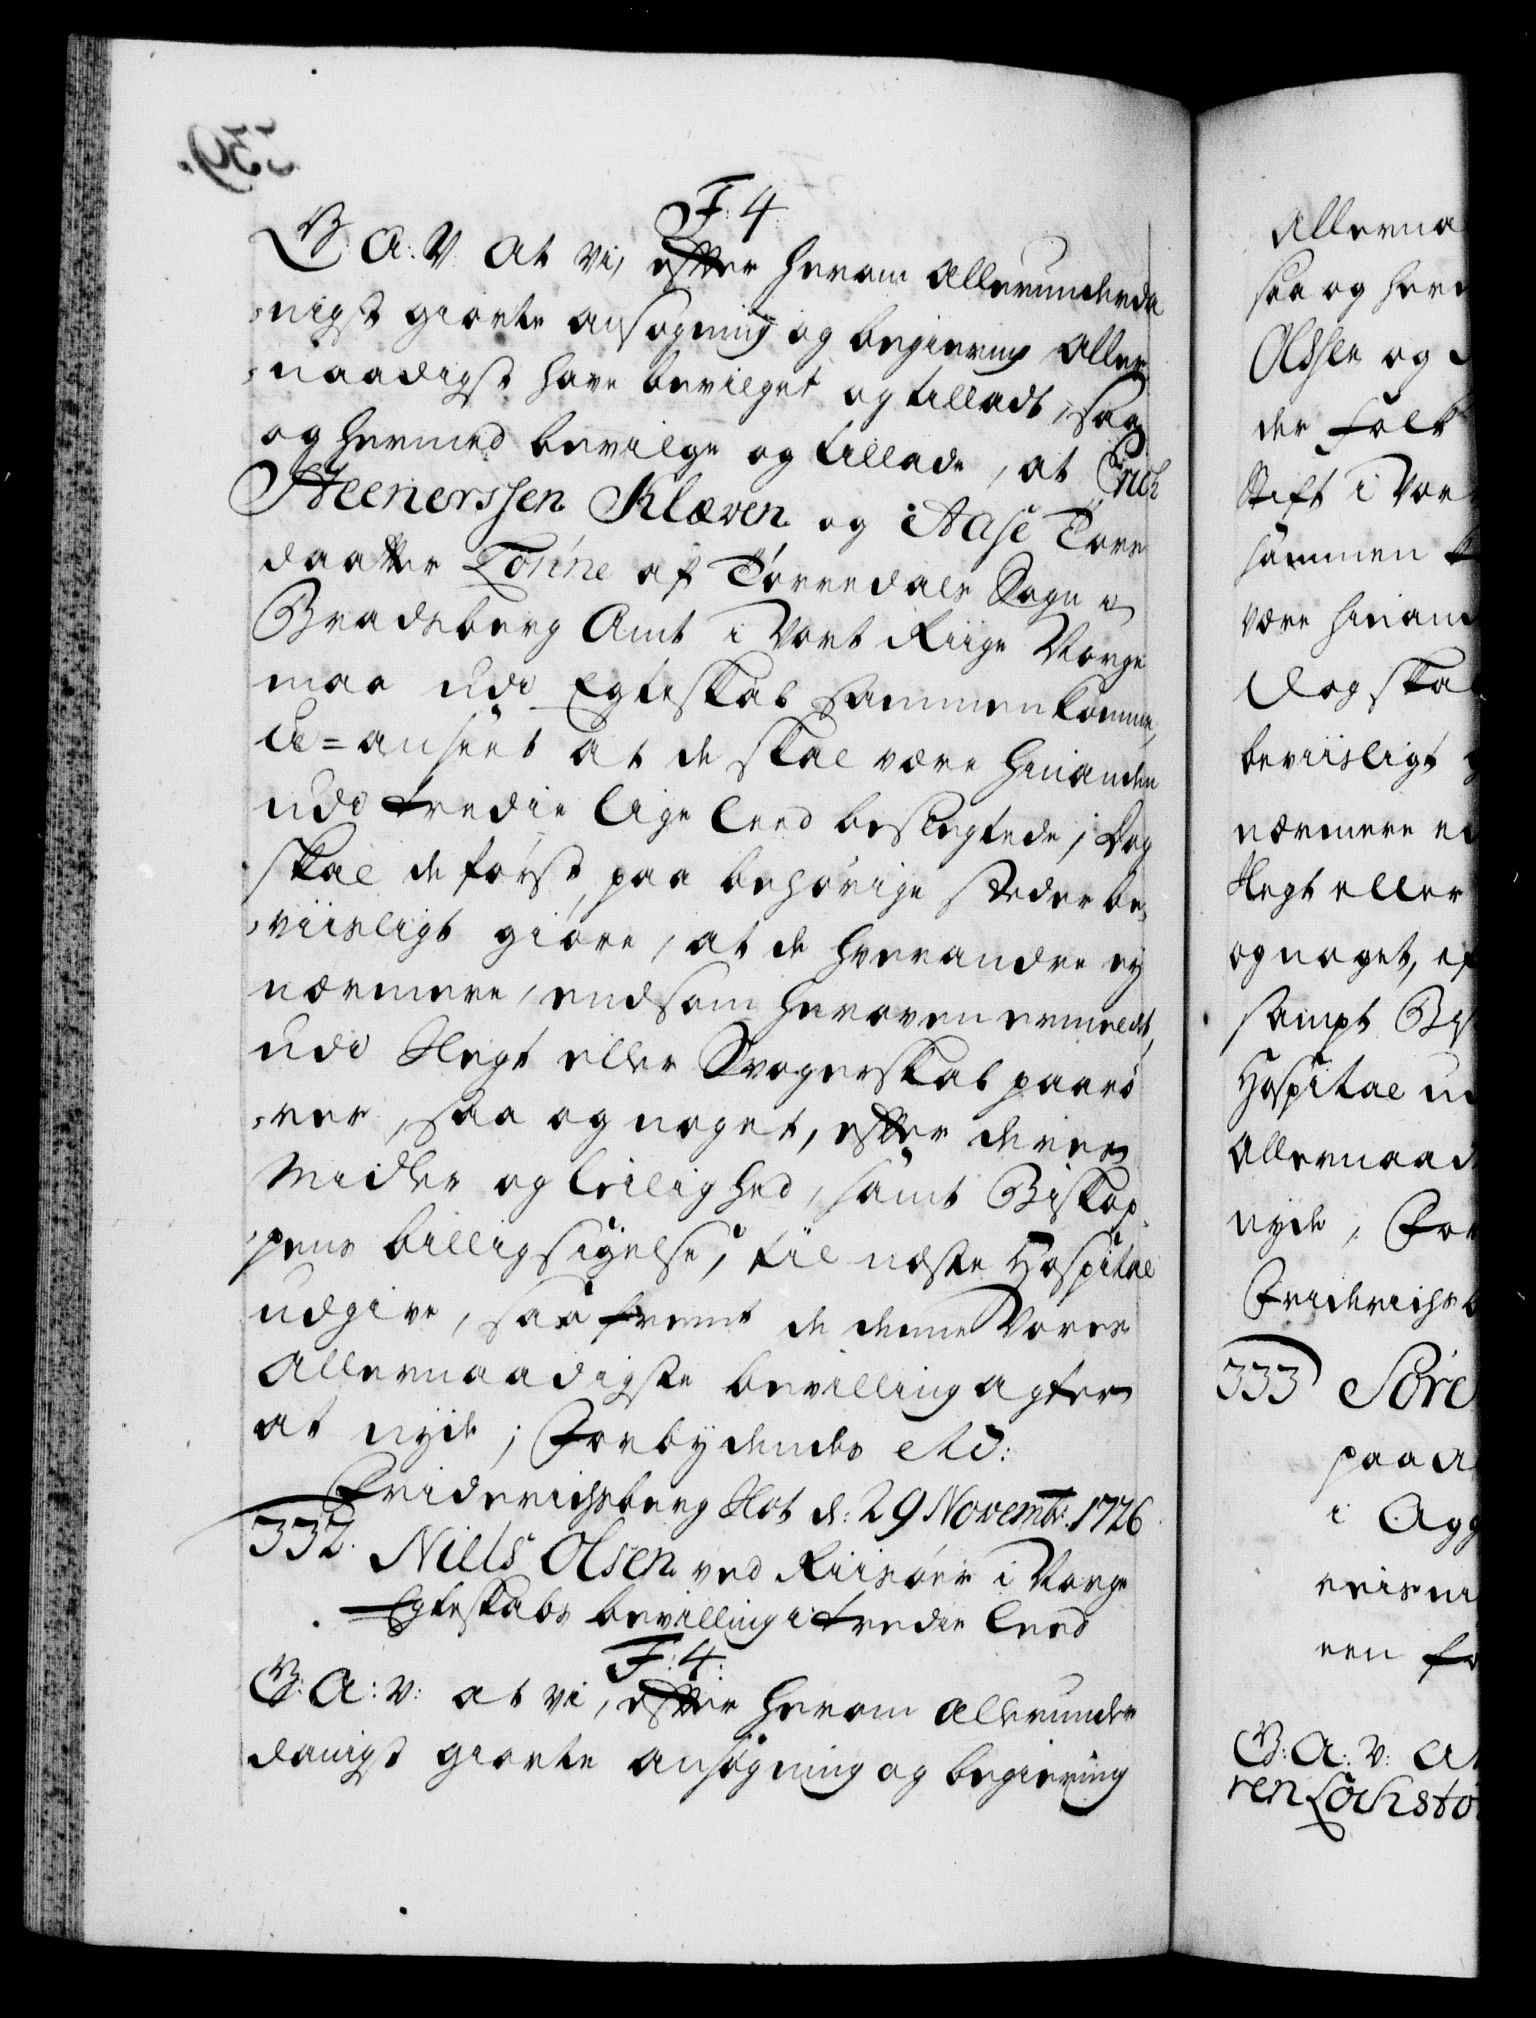 F: 4.
G: A: V: At vi, efter herom allerunderda
nigst giorte ansøgning og begiering aller
naadigst have bevilget og tilladt, saa
og hermed bevilge og tillade, at Erich
Steenerssen Kleven og Aase Tore
daatter Tonne af Tørredals Sogn i
Bradsberg Amt i Vort Riige Norge
maa udi Egteskab sammenkomme,
u-anseet at de skal være hinanden
udi tredie lige leed beslegtede; Dog
skal de først paa behørige steder be,
viisligt giøre, at de hverandre ey
nærmere, end som heroven ermeldt,
udi Slegt eller Svogerskab paarø
rer, saa og noget, efter deres
Midler og leilighed, samt Biskop
pens billigsigelse, til næste Hospital
udgive, saa fremt de denne Vores
Allernaadigste bevilling agter
at nyde; Forbydendes etc:
Friderichsberg Slot d: 29 Novembr: 1726.
332. Niels Olsen ved Riisøer i Norge
Egteskabs bevilling i tredie leed
F: 4:
G: A: V: at vi, efter herom allerunder
danigst giorte ansøgning og begiering
Allerna
saa og her
Olsen og
der folk
Stift i Vor
sammen
være hinan
Dog ska
beviisligt
nærmere
Slegt eller
og noget, ef
sampt Bi
Hospital u
Allernaad
nyde, For
Friderichsb
333 Søre
paa
i Agg
reisni
een
G: A: V: At
ren Lochstø